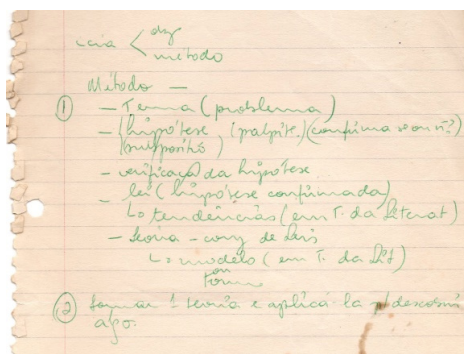 ccia < obj
método
Método —
① – Tema (problema)
– (hipótese (palpite) (confirma se ou ñ?)
(suposição)
– verificação da hipótese
– lei (hipótese confirmada)
↳ tendências (em T. da Literat)
– teoria – conj de leis
↳ modelo (em T. da Lit)
ou
forma
② tomar 1 teoria e aplicá-la p/ descobrir
algo.